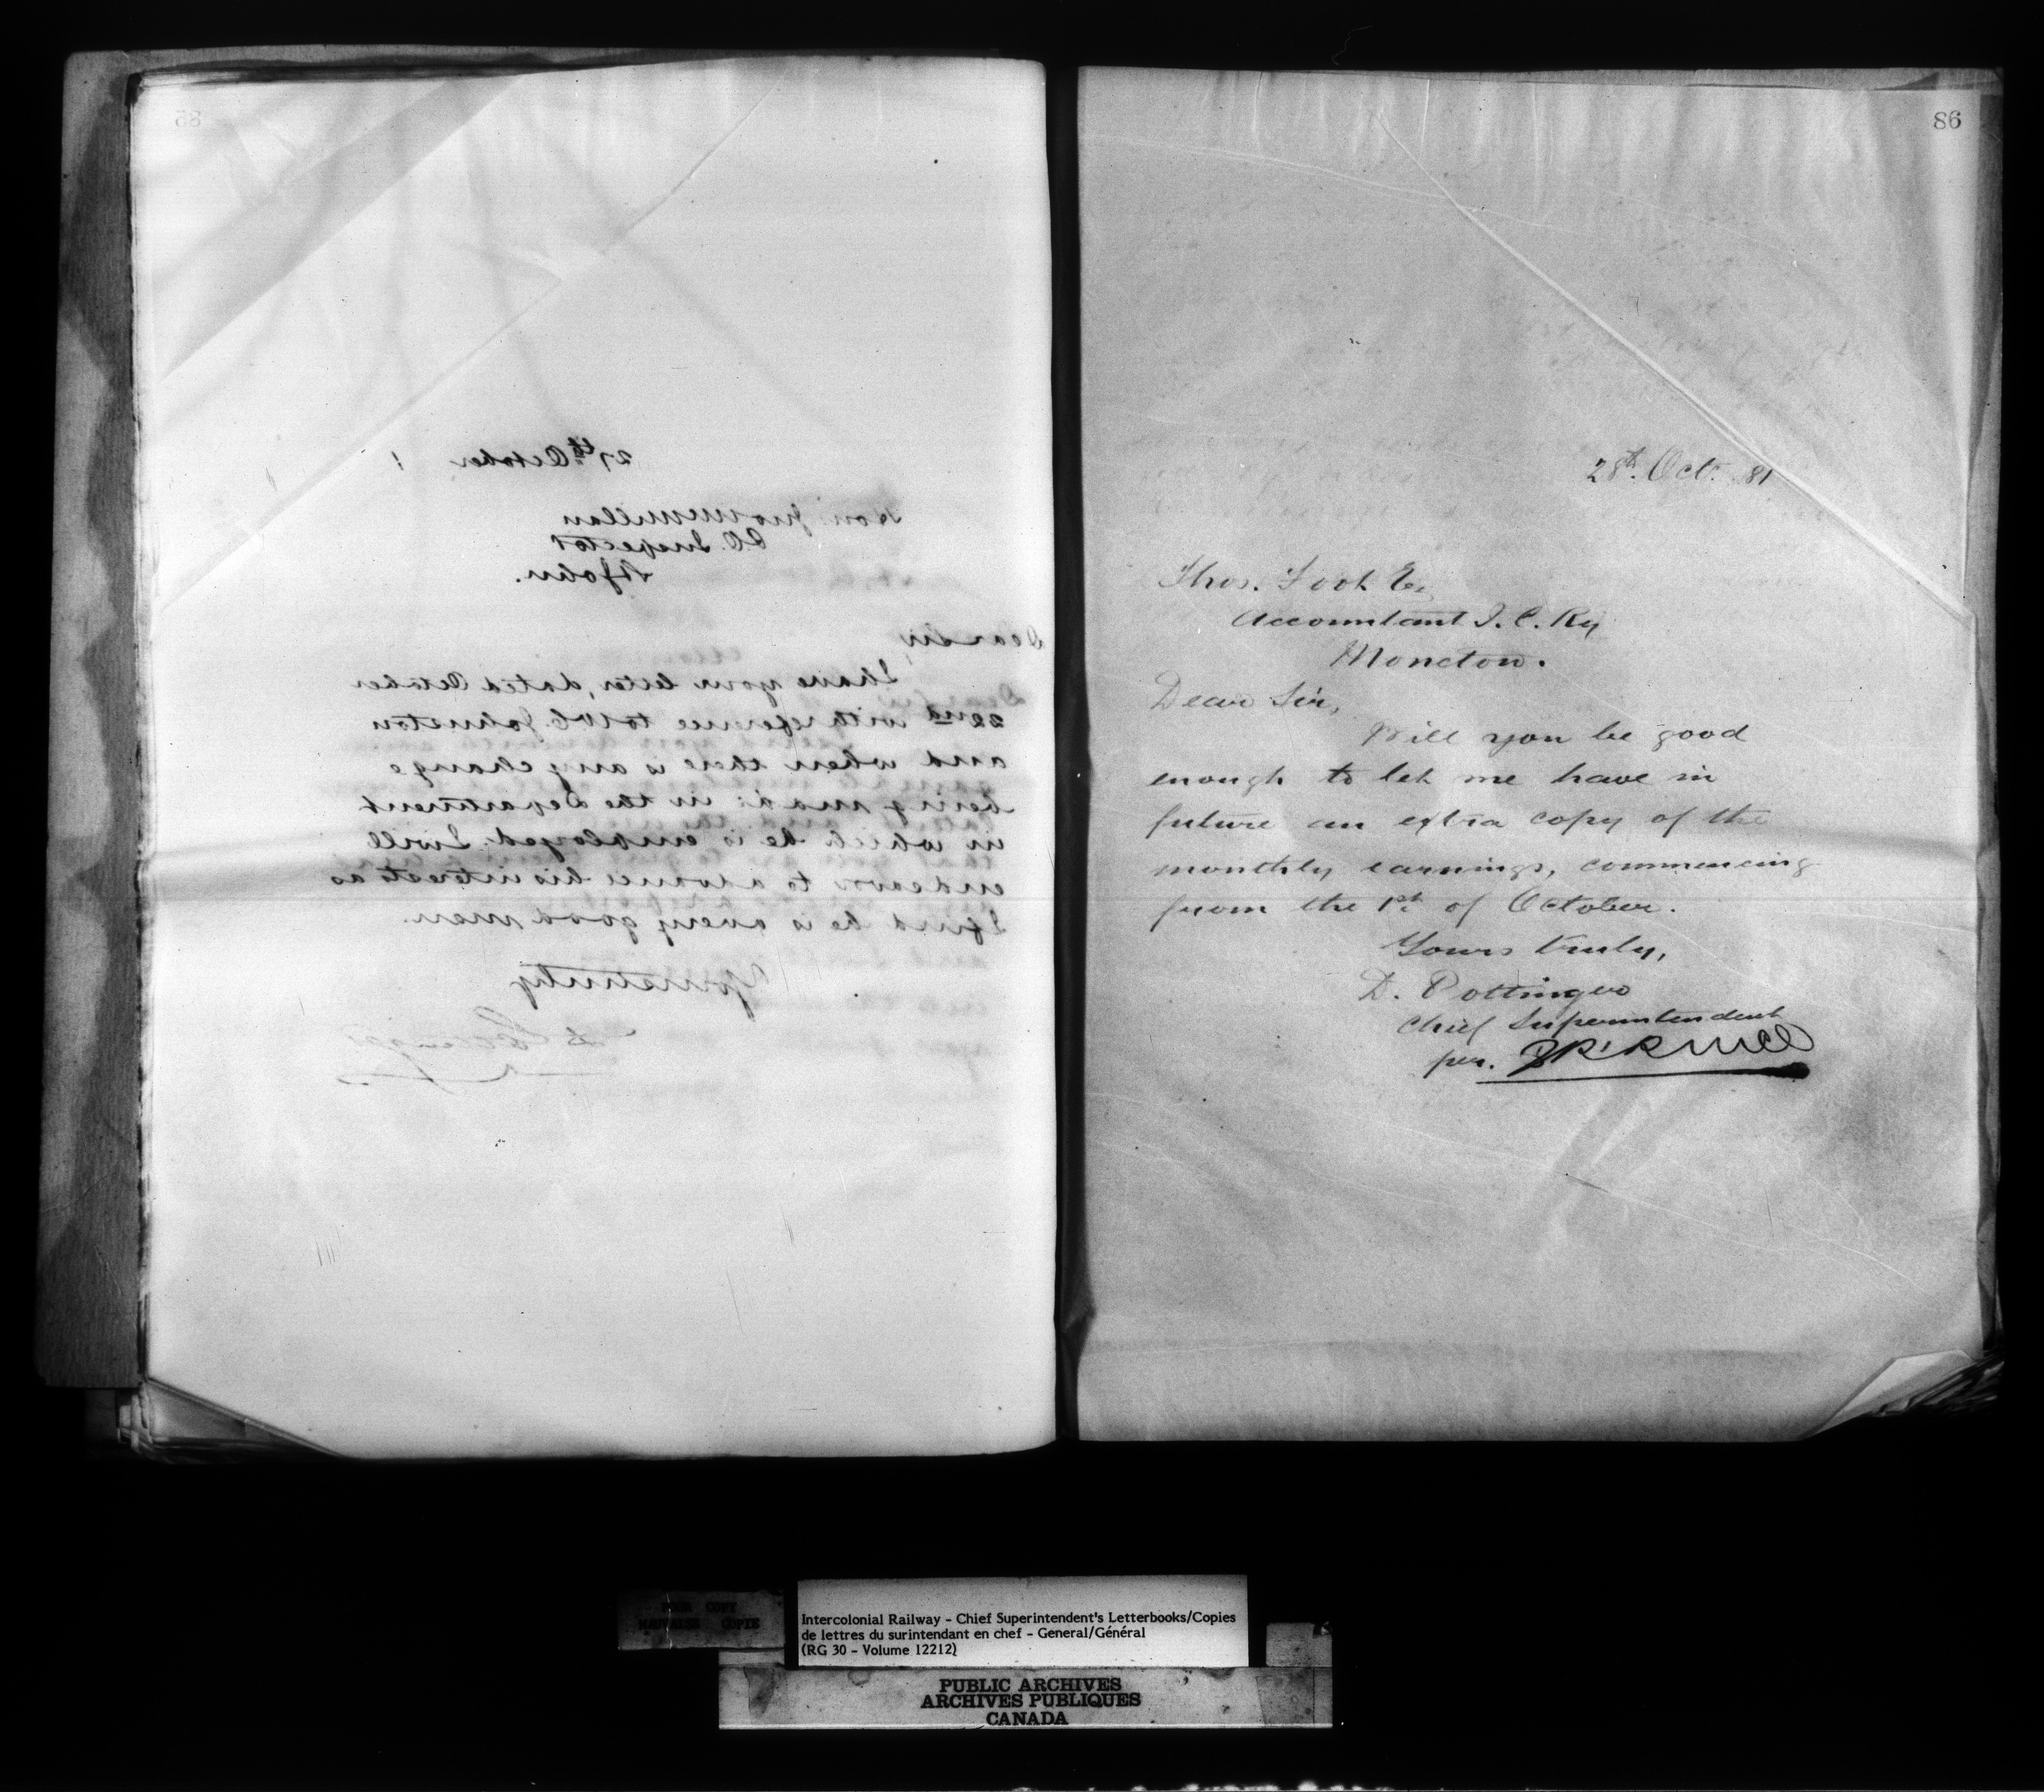 85
27th October 1
Hon. Jno McMillan
P.O. Inspector
St John.
Dear Sir,
I have your letter, dated October
22nd with reference to W.C. Johnston
and when there is any change
being made in the Department
in which he is employed I will
endeavor to advance his interests as
I find he is a very good man.
Yours truly
D Pottinger
86
28th Oct. 81
Thos. Foot Es
Accountant I. C. Ry
Moncton.
Dear Sir,
Will you be good
enough to let me have in
future an extra copy of the
monthly earnings, commencing
from the 1st of October.
Yours truly,
D. Pottinger
Chief Superintendent
per.
POOR COPY
MAUVAISE COPIE
Intercolonial Railway - Chief Superintendent's Letterbooks/Copies
de lettres du surintendant en chef - General/Général
(RG 30 - Volume 12212)
PUBLIC ARCHIVES
ARCHIVES PUBLIQUES
CANADA